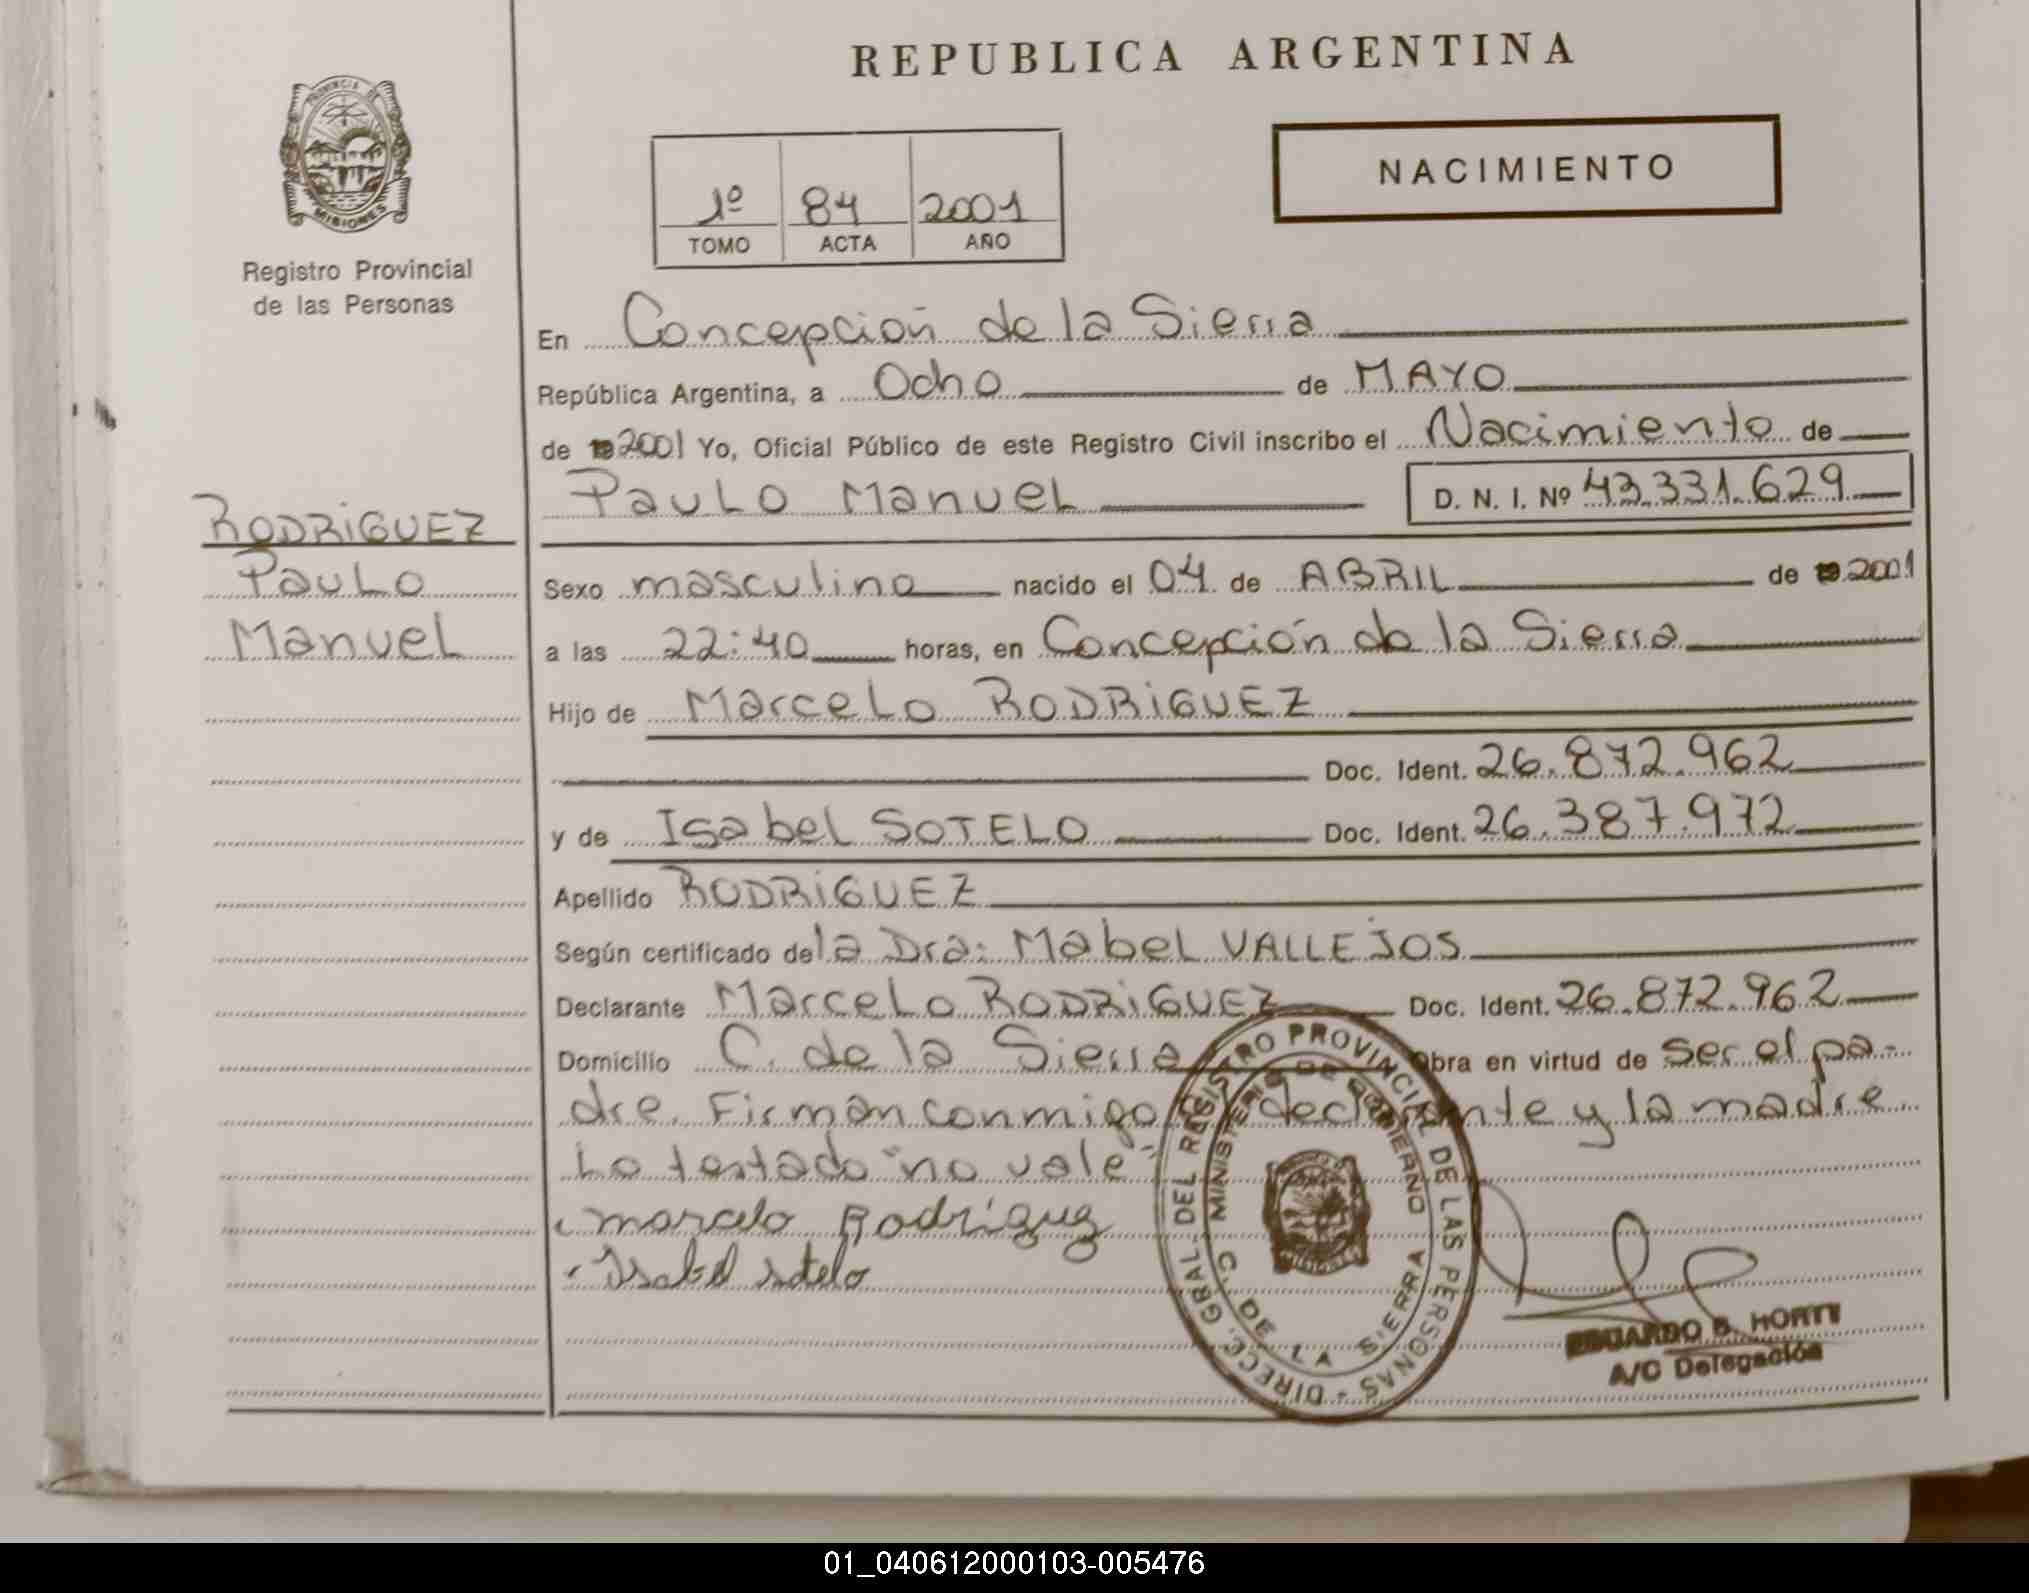 REPUBLICA ARGENTINA
PROVINCIA DE
MISIONES
Registro Provincial
de las Personas
NACIMIENTO
1º 84 2001
TOMO ACTA AÑO
En Concepción de la Sierra
República Argentina, a Ocho de MAYO
de 19 2001 Yo, Oficial Público de este Registro Civil inscribo el Nacimiento de
Paulo Manuel D. N. I. Nº 43.331.629
RODRIGUEZ
Paulo
Manuel
Sexo masculino nacido el 04 de ABRIL de 19 2001
a las 22:40 horas, en Concepción de la Sierra
Hijo de Marcelo RODRIGUEZ
Doc. Ident. 26.872.962
y de Isabel SOTELO Doc. Ident. 26.387.972
Apellido RODRIGUEZ
Según certificado de la Dra: Mabel VALLEJOS
Declarante Marcelo RODRIGUEZ Doc. Ident. 26.872.962
Domicilio C. de la Sierra Obra en virtud de ser el pa-
dre. Firman conmigo el declarante y la madre
Lo testado "no vale"
marcelo Rodríguez
Isabel sotelo
DIRECC. GRAL. DEL REGISTRO PROVINCIAL DE LAS PERSONAS
MINISTERIO DE GOBIERNO
C. DE LA SIERRA
EDUARDO B. HORTT
A/C Delegación
01_040612000103-005476